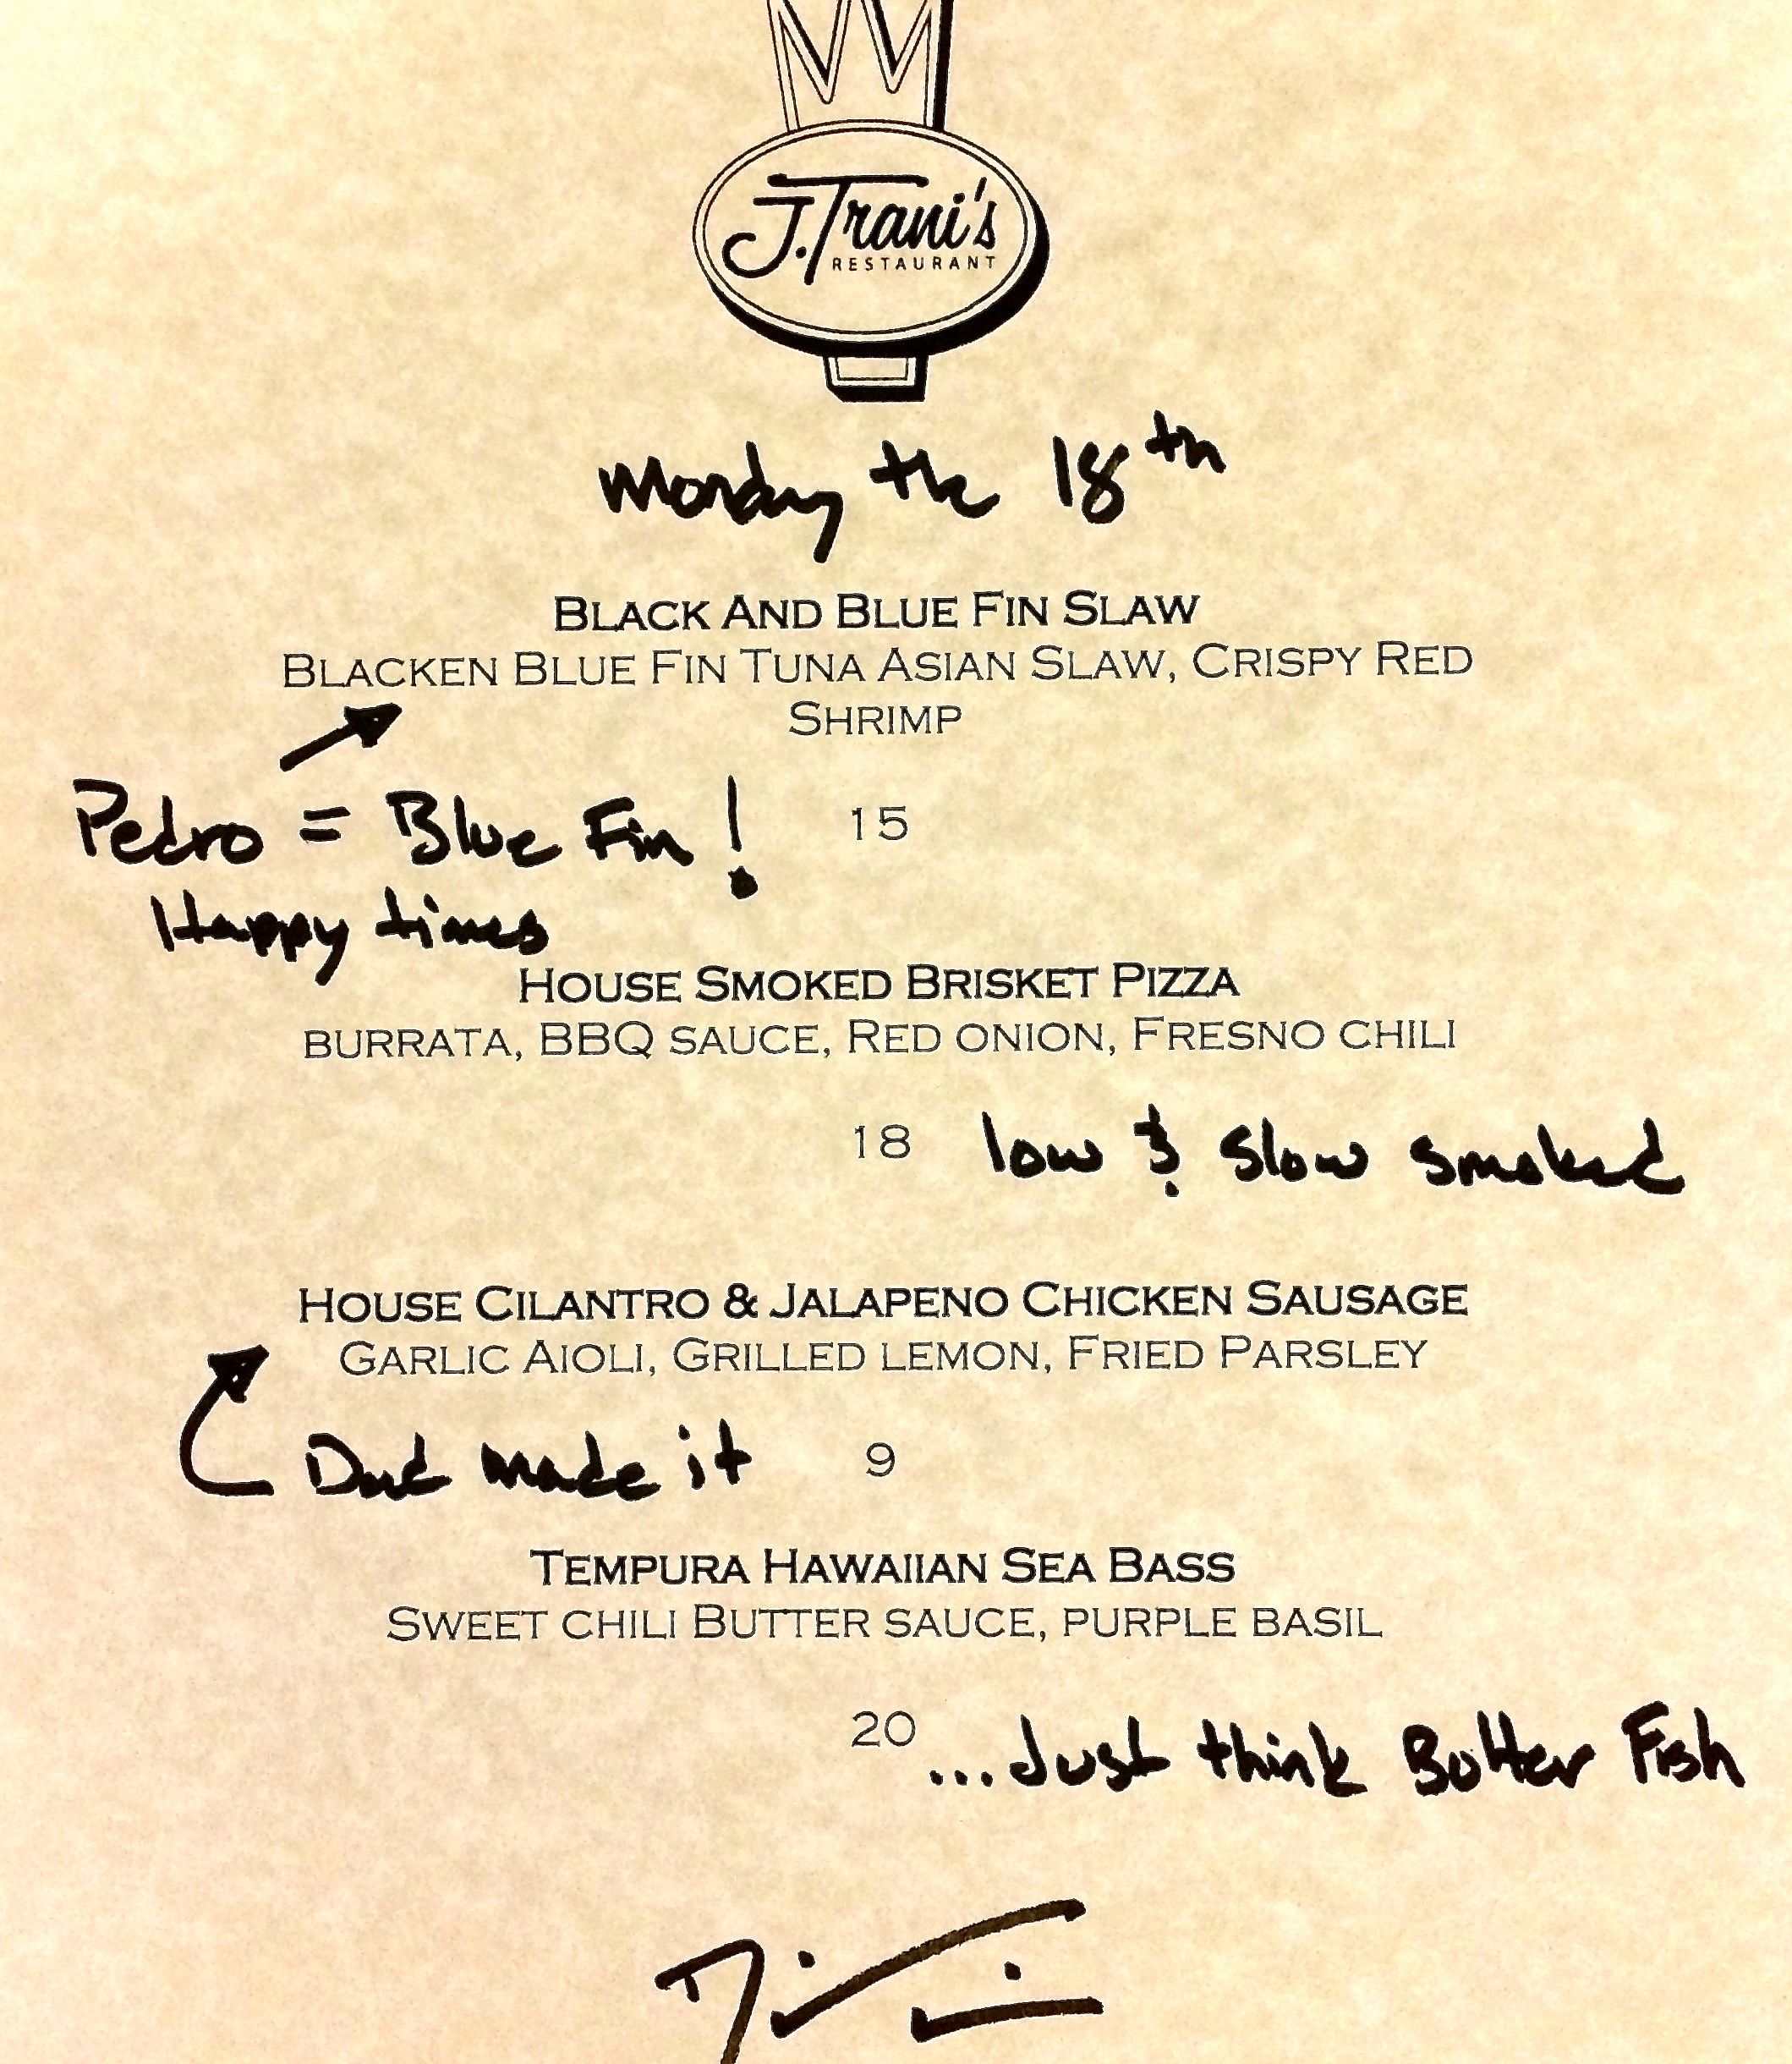 J. Trani's
RESTAURANT
Monday the 18th
BLACK AND BLUE FIN SLAW
BLACKEN BLUE FIN TUNA ASIAN SLAW, CRISPY RED
SHRIMP
Pedro = Blue Fin! 15
Happy times
HOUSE SMOKED BRISKET PIZZA
BURRATA, BBQ SAUCE, RED ONION, FRESNO CHILI
18 low & slow smoked
HOUSE CILANTRO & JALAPENO CHICKEN SAUSAGE
GARLIC AIOLI, GRILLED LEMON, FRIED PARSLEY
Dad made it 9
TEMPURA HAWAIIAN SEA BASS
SWEET CHILI BUTTER SAUCE, PURPLE BASIL
20 ...Just think Butter Fish